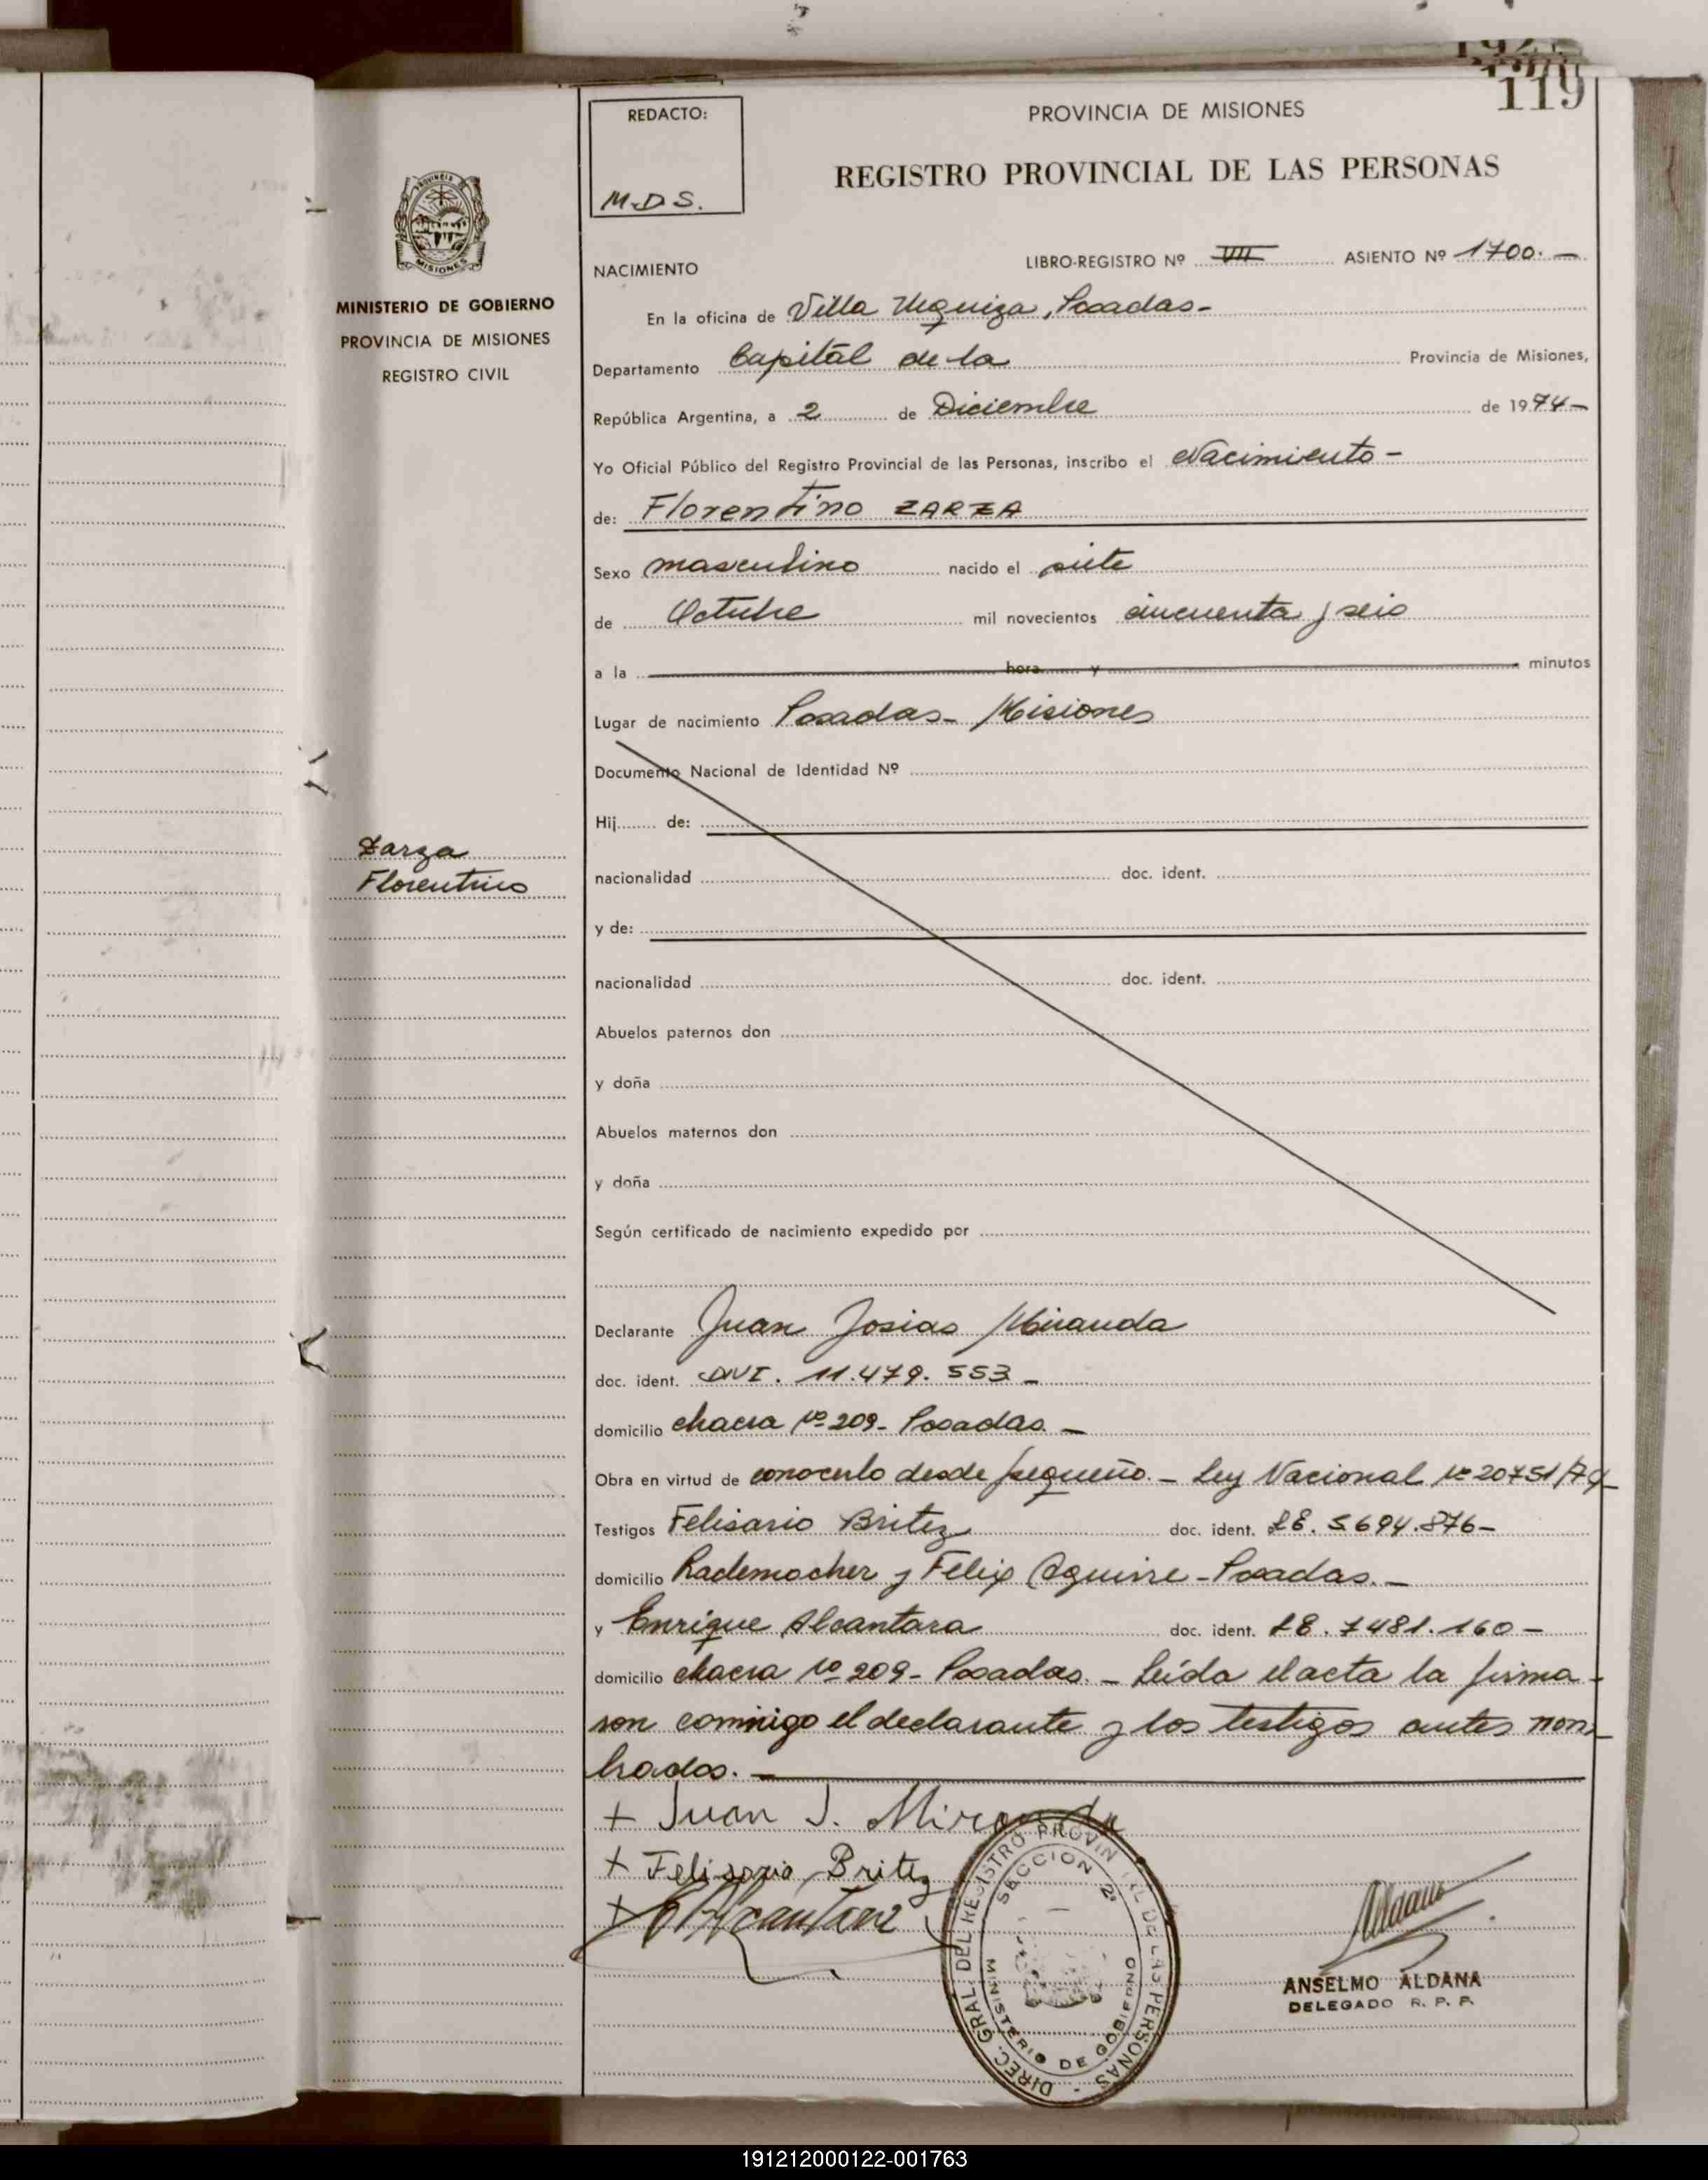 119
REDACTO:
M.D.S.
PROVINCIA DE MISIONES
REGISTRO PROVINCIAL DE LAS PERSONAS
PROVINCIA DE
MISIONES
MINISTERIO DE GOBIERNO
PROVINCIA DE MISIONES
REGISTRO CIVIL
Zarza
Florentino
NACIMIENTO LIBRO-REGISTRO Nº VII ASIENTO Nº 1700.—
En la oficina de Villa Urquiza, Posadas-
Departamento Capital de la Provincia de Misiones,
República Argentina, a 2 de Diciembre de 1974-
Yo Oficial Público del Registro Provincial de las Personas, inscribo el Nacimiento-
de: Florentino ZARZA
Sexo masculino nacido el siete
de Octubre mil novecientos cincuenta y seis
a la hora y minutos
Lugar de nacimiento Posadas- Misiones
Documento Nacional de Identidad Nº
Hij de:
nacionalidad doc. ident.
y de:
nacionalidad doc. ident.
Abuelos paternos don
y doña
Abuelos maternos don
y doña
Según certificado de nacimiento expedido por
Declarante Juan Josias Miranda
doc. ident. DNI. 11.479.553-
domicilio chacra Nº 209- Posadas.-
Obra en virtud de conocerlo desde pequeño.- Ley Nacional Nº 20751/74-
Testigos Felisario Britez doc. ident. LE. 5.694.876-
domicilio Rademacher y Felix Aguirre-Posadas.-
y Enrique Alcantara doc. ident. LE. 7481.160-
domicilio chacra Nº 209- Posadas.- Leída el acta la firma-
ron conmigo el declarante y los testigos antes nom-
brados.-
+ Juan J. Miranda
+ Felisario Britez
+ E Alcantara
DIREC. GRAL. DEL REGISTRO PROVINCIAL DE LAS PERSONAS -
SECCION 2ª
MINISTERIO DE GOBIERNO
Aldana
ANSELMO ALDANA
DELEGADO R. P. P.
191212000122-001763